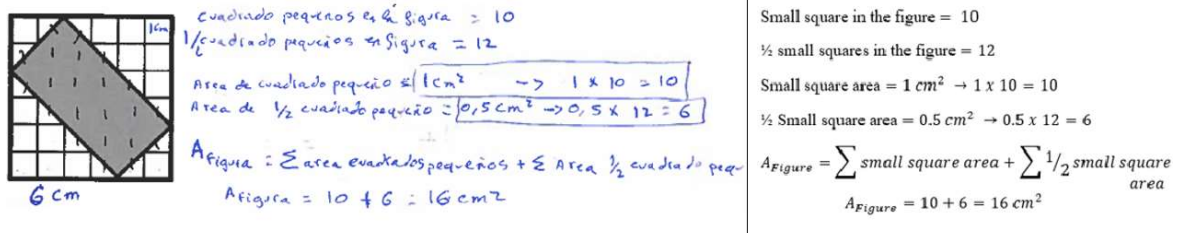 1cm
6 cm
cuadrado pequeños en la figura = 10
1/2 cuadrado pequeños en figura = 12
Area de cuadrado pequeño = 1cm² -> 1 x 10 = 10
Area de 1/2 cuadrado pequeño = 0,5 cm² -> 0,5 x 12 = 6
A figura = Σ area cuadrados pequeños + Σ Area 1/2 cuadrado peq
A figura = 10 + 6 = 16 cm2
Small square in the figure = 10
½ small squares in the figure = 12
Small square area = 1 cm² → 1 x 10 = 10
½ Small square area = 0.5 cm² → 0.5 x 12 = 6
A_Figure = ∑ small square area + ∑ 1/2 small square
area
A_Figure = 10 + 6 = 16 cm²